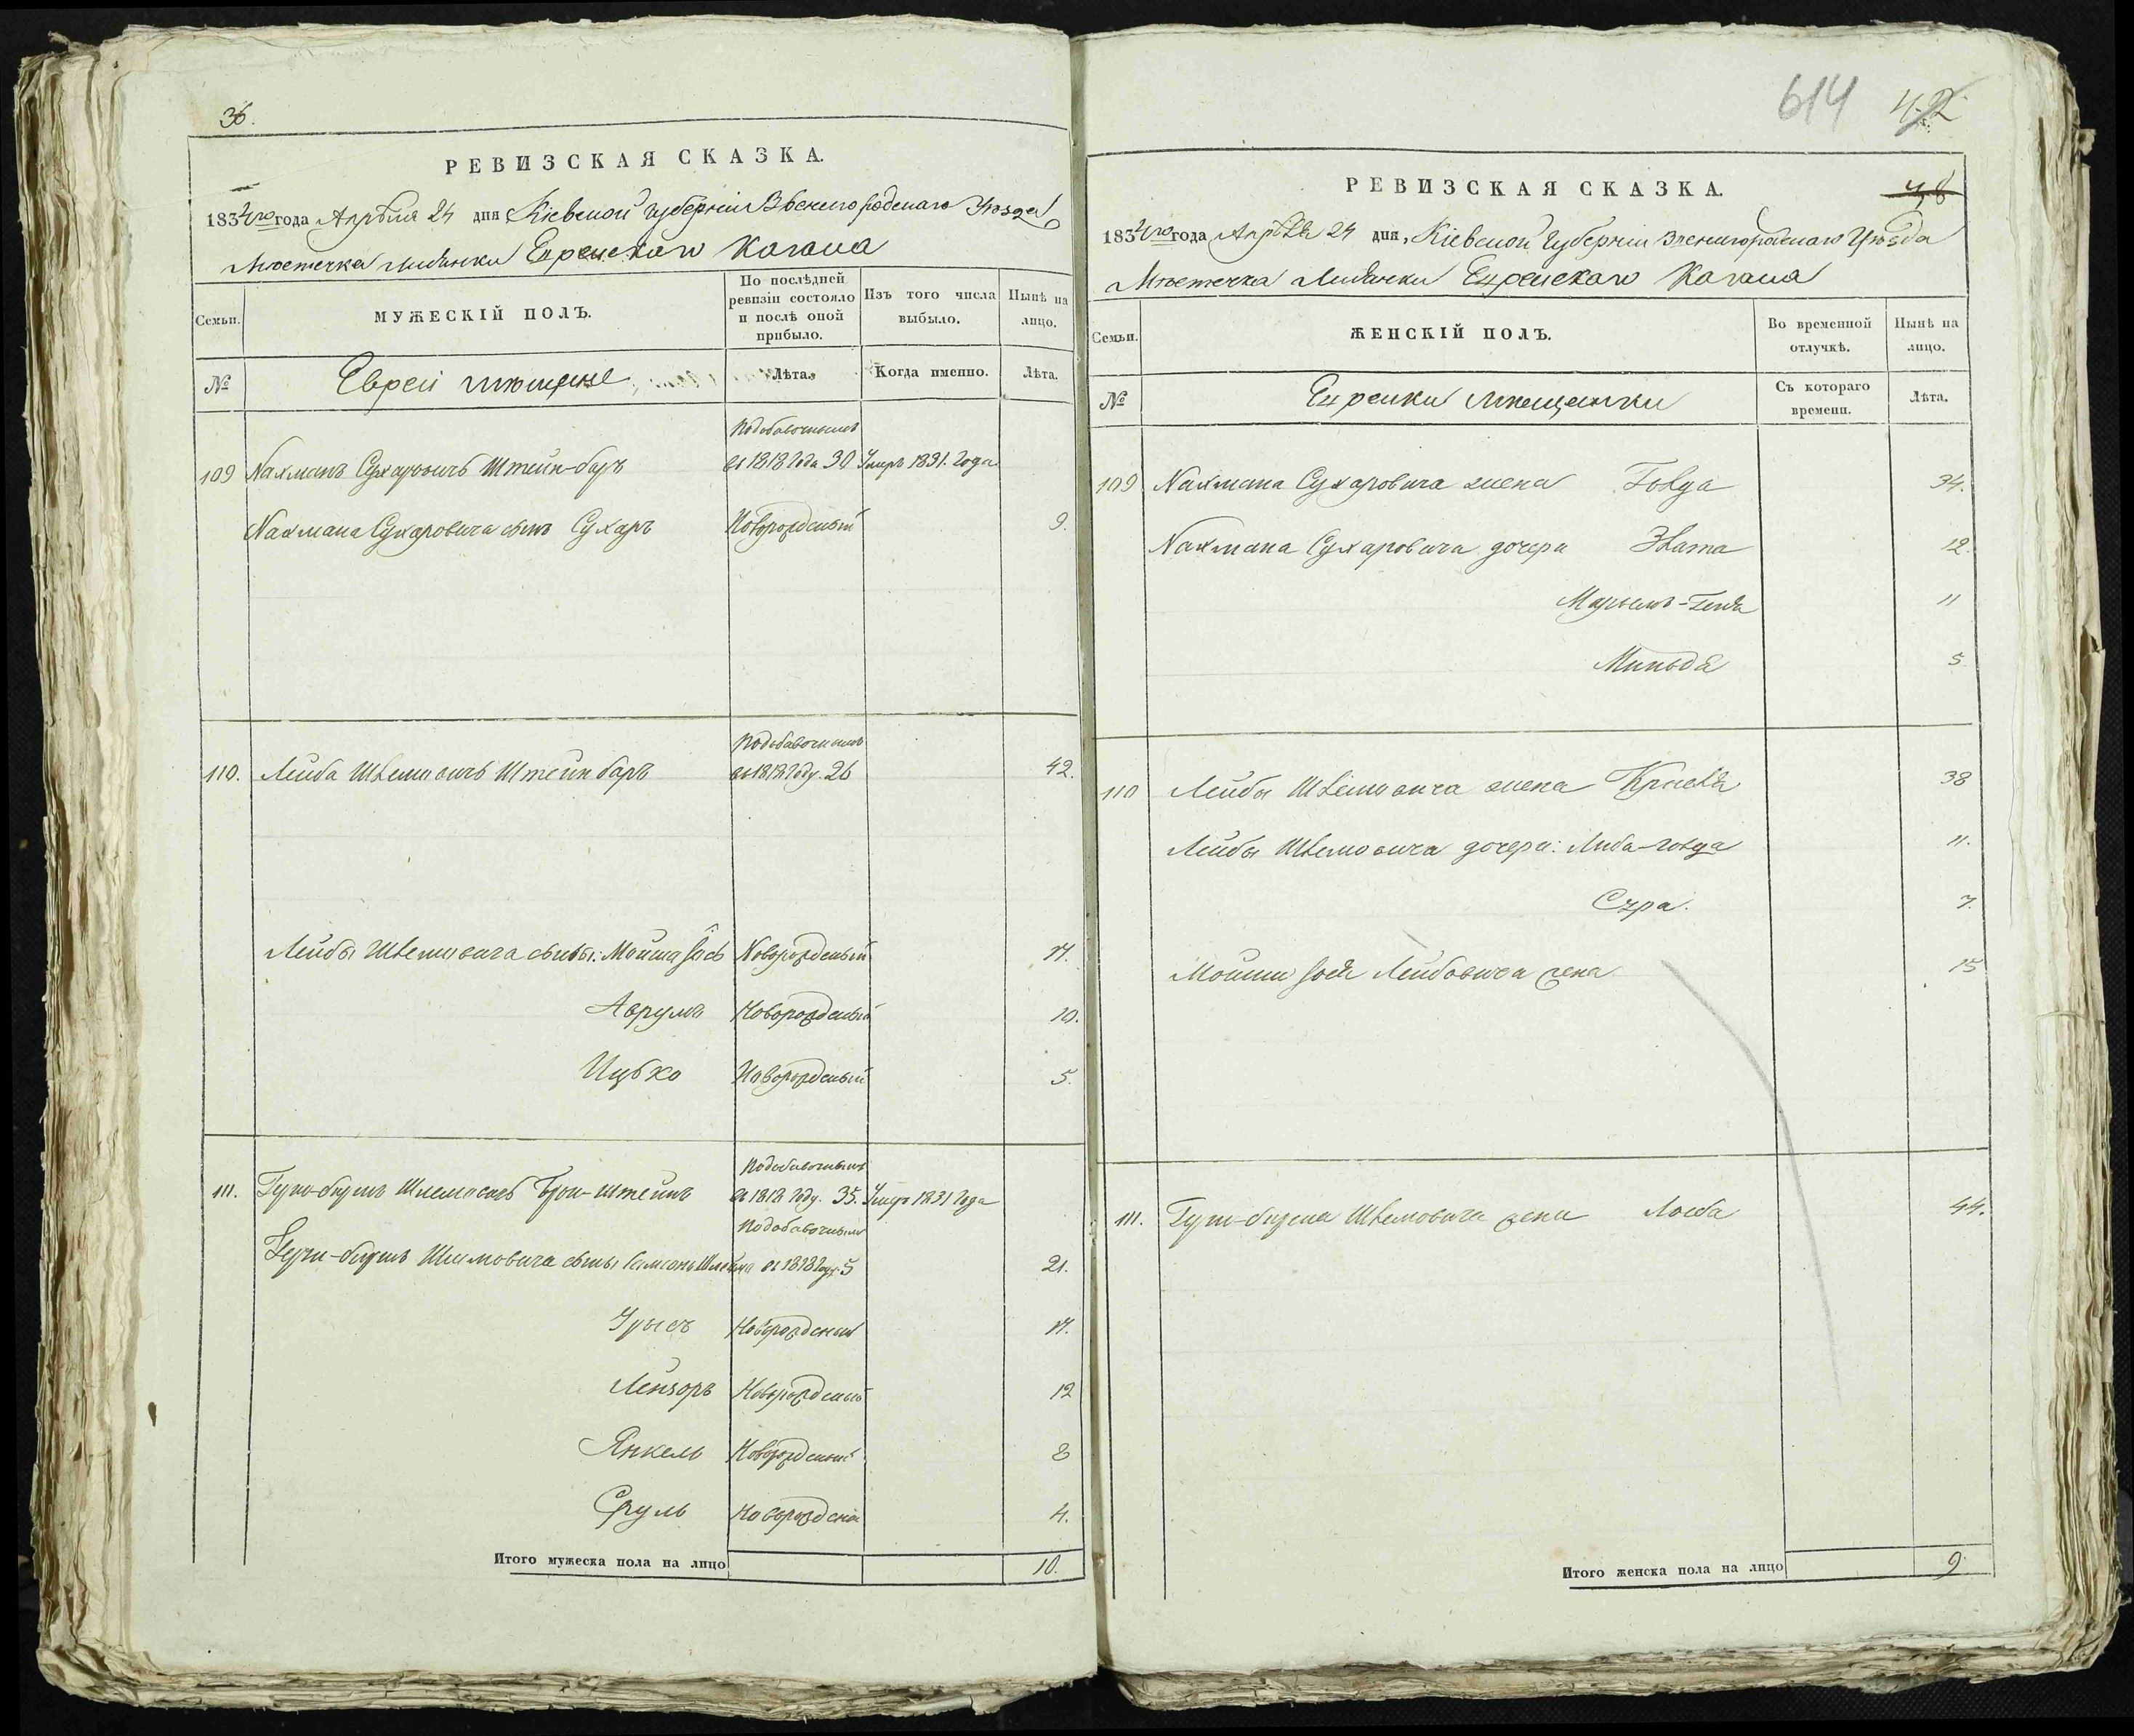 36.
РЕВИЗСКАЯ СКАЗКА.
1834го года Апрѣля 24 дня Кіевской Губерніи Звенигородскаго Уѣзда
Мѣстечка Лисянки Еврейскаго Кагала
Семьи.
МУЖЕСКІЙ ПОЛЪ.
По послѣдней ревизіи состояло и послѣ оной прибыло.
Изъ того числа выбыло.
Нынѣ на лицо.
№
Евреи мѣщане
Лѣта.
Когда именно.
Лѣта.
Подобавочнымъ
109 Нахманъ Сухаровичъ Штейн-баръ въ 1818 года 30 Умеръ 1831. года
Нахмана Сухаровича сынъ Сухаръ Новорожденый 9.
Подобавочнымъ
110. Лейба Шлемовичъ Штейнбаръ въ 1818 году. 26 42.
Лейбы Шлемовича сыны: Мошка Іось Новорожденый 17.
Аврумъ Новорожденый 10.
Ицько Новорожденый 5.
Подобавочнымъ
111. Шлемовичъ Брон-штейнъ въ 1818 году. 35. Умеръ 1831 года
Подобавочнымъ
Шлимовича сыны въ 1818 году. 5 21.
Урысъ Новорожденый 17.
Лейзоръ Новорожденый 12
Янкель Новорожденый 8
Сруль Новорожденый 4.
Итого мужеска пола на лицо 10.
614 42
РЕВИЗСКАЯ СКАЗКА.
48
1834го года Апрѣля 24 дня, Кіевской Губерніи Звенигородскаго Уѣзда
Мѣстечка Лисянки Еврейскаго Кагала
Семьи.
ЖЕНСКІЙ ПОЛЪ.
Во временной отлучкѣ.
Нынѣ на лицо.
№
Еврейки мѣщанки
Съ котораго времени.
Лѣта.
109 Нахмана Сухаровича жена Голда 34.
Нахмана Сухаровича дочери Злата 12.
Марьемъ-Геня 11
Миндля 5.
110 Лейбы Шлемовича жена Крисля 38
Лейбы Шлемовича дочери: Либа-голда 11.
Сура. 7.
Мошки Іося Лейбовича жена 15
111. Шлемовича жена 44.
Итого женска пола на лицо 9